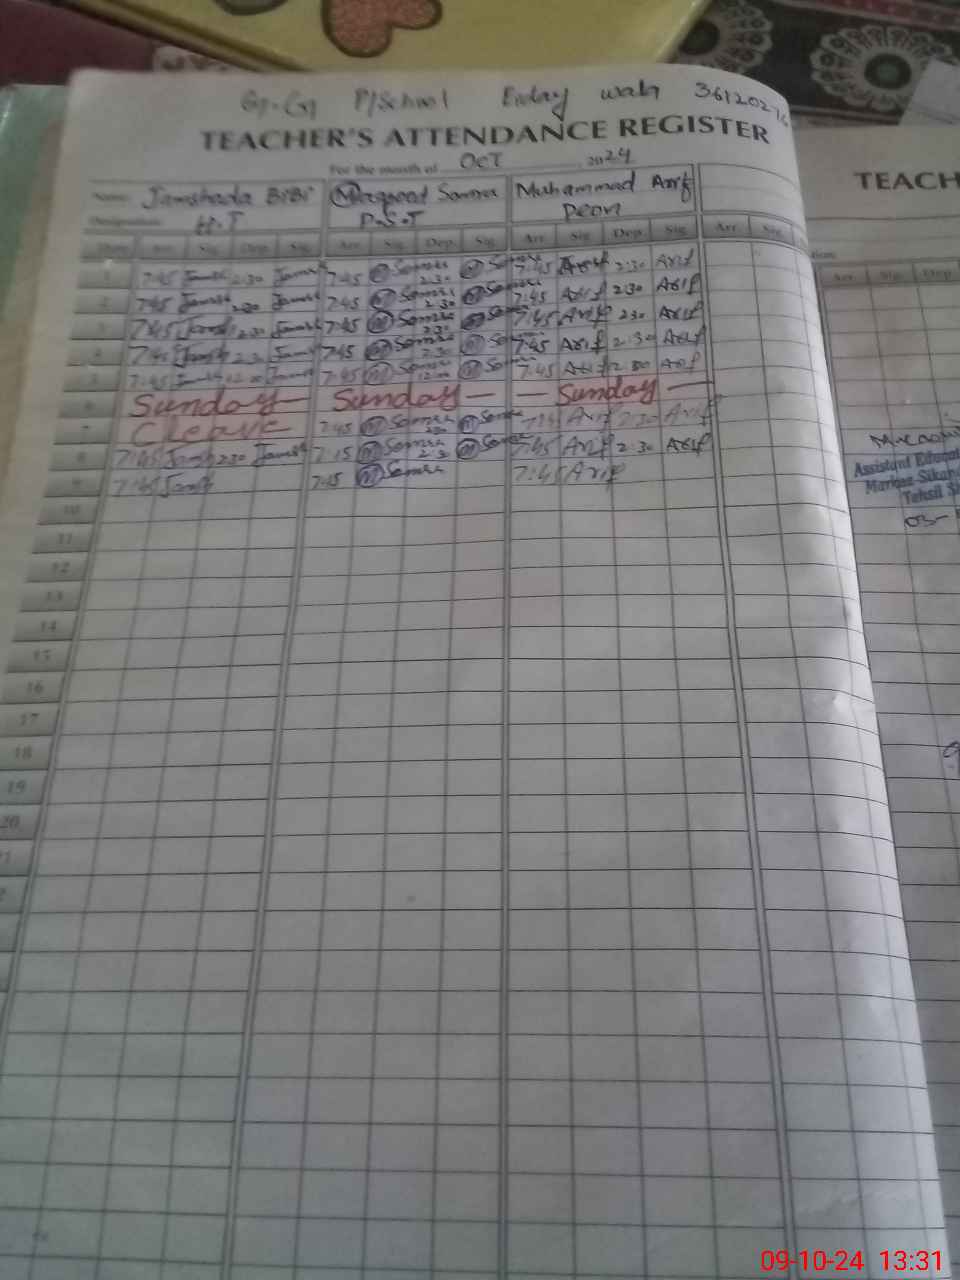 P/School wala 36120276
TEACHER'S ATTENDANCE REGISTER
For the month of OCT 2024
Name Jamshada BiBi Maqsood Samra Muhammad Arif
H.T P.S.T Peon
Arr. Sig. Dep. Sig. Arr. Sig. Dep. Sig. Arr. Sig. Dep. Sig. Arr. Sig.
1 7:45 Jamsh 2:30 Jamsh 7:45 M Samra 2:30 M Samra 7:45 Arif 2:30 Arif
2 7:45 Jamsh 2:30 Jamsh 7:45 M Samra 2:30 M Samra 7:45 Arif 2:30 Arif
3 7:45 Jamsh 2:30 Jamsh 7:45 M Samra 2:30 M Samra 7:45 Arif 2:30 Arif
4 7:45 Jamsh 2:30 Jamsh 7:45 M Samra 2:30 M Samra 7:45 Arif 2:30 Arif
5 7:45 Jamsh 12:00 Jamsh 7:45 M Samra 12:00 M Samra 7:45 Arif Arif
6 Sunday — Sunday — — Sunday —
7 C leave 7:45 M Samra M Samra 7:45 Arif 2:30 Arif
8 7:45 Jamsh 2:30 Jamsh 7:45 M Samra 2:30 M Samra 7:45 Arif 2:30 Arif
9 7:45 Jamsh 7:45 M Samra 7:45 Arif
10
11
12
13
14
15
16
17
18
19
20
TEACH
Arr. Sig. Dep.
Assistant Educat
Markaz-Sikan
Tehsil S
03-
09-10-24 13:31